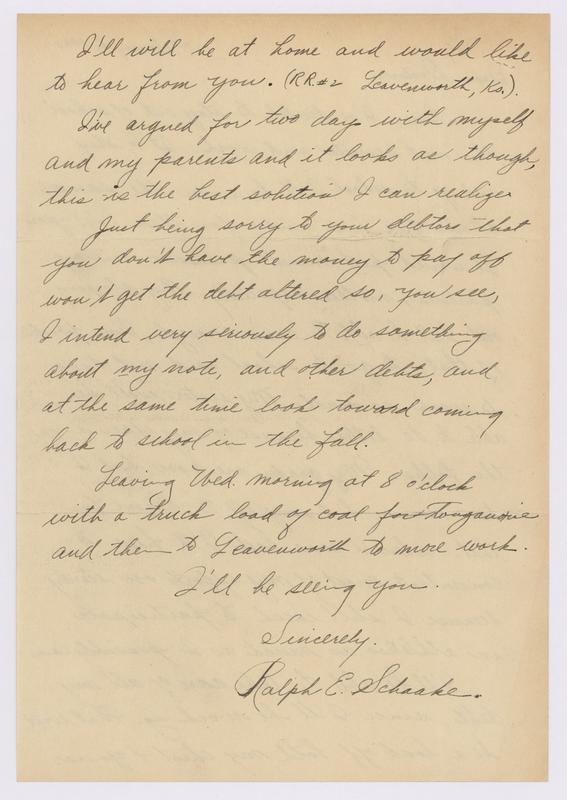 I'll will be at home and would like
to hear from you. (RR#2 Leavenworth, Ks.).
I've argued for two day with myself
and my parents and it looks as though,
this is the best solution I can realize
Just being sorry to your debtors that
you don't have the money to pay off
won't get the debt altered so, you see,
I intend very seriously to do something
about my note, and other debts, and
at the same time look toward coming
back to school in the fall.
Leaving Wed. morning at 8 o'clock
with a truck load of coal for Tonganoxie
and then to Leavenworth to more work.
I'll be seeing you.
Sincerely.
Ralph E. Schaake.